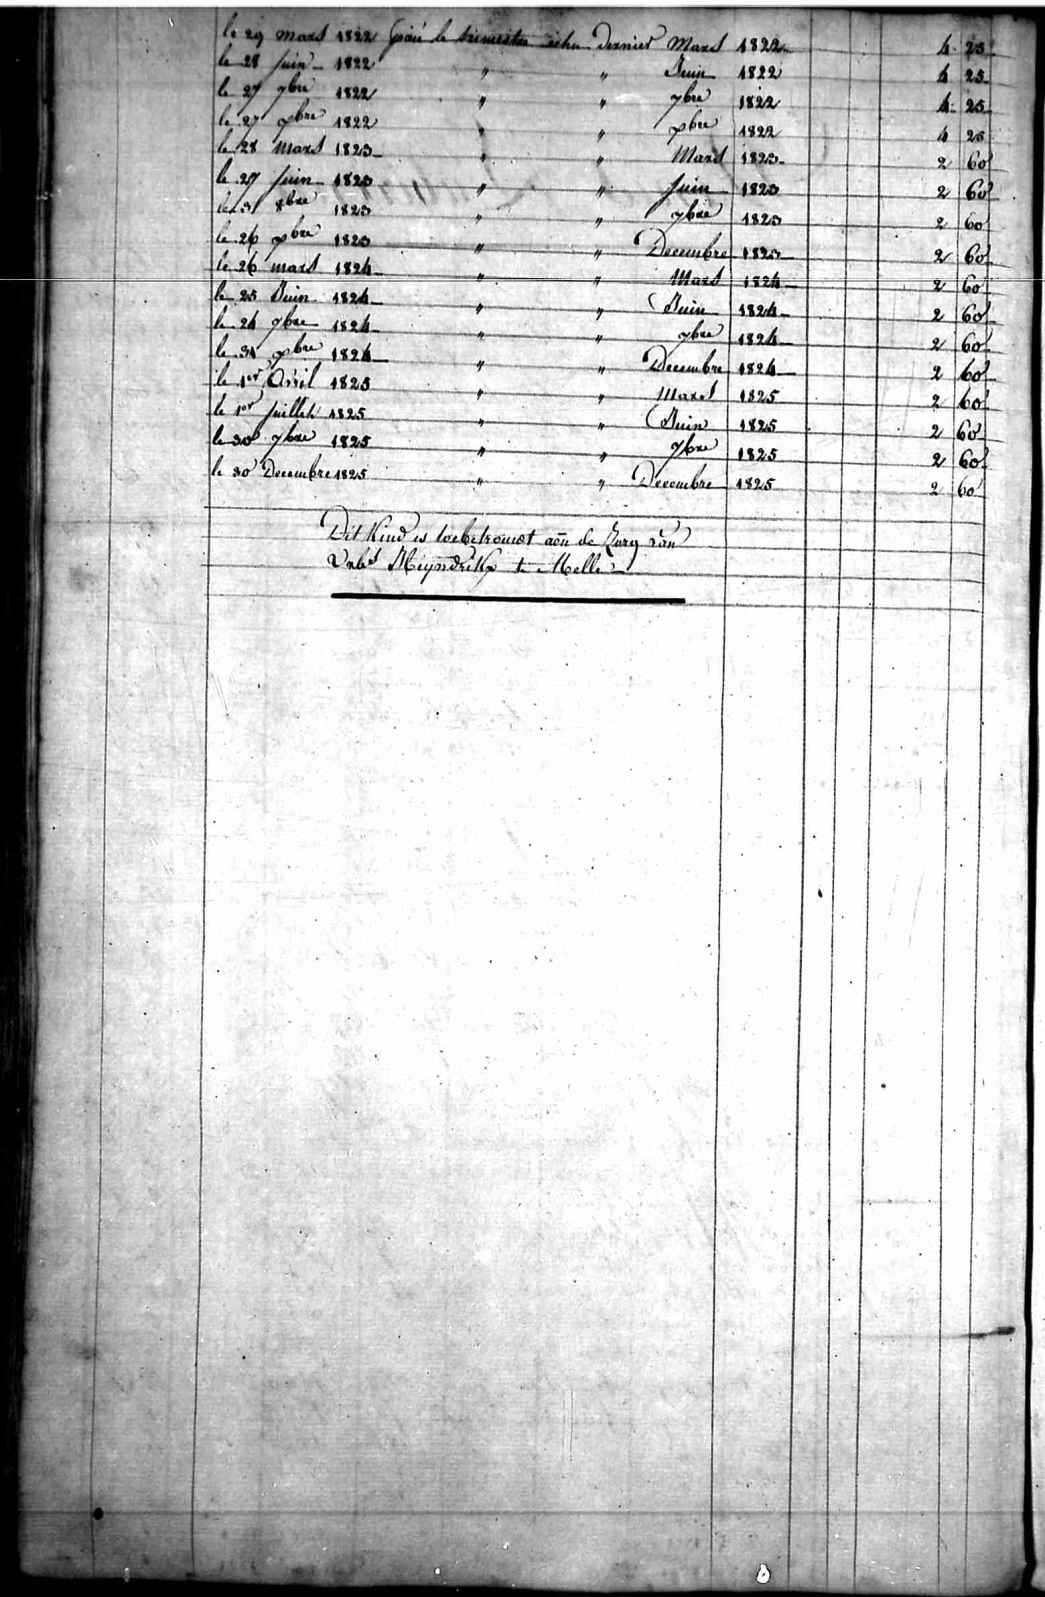 le 29 mars 1822 payé le trimestre échu dernier Mars 1822 4 25
le 28 Juin 1822 " " Juin 1822 4 25
le 27 7bre 1822 " " 7bre 1822 4 25
le 27 xbre 1822 " " xbre 1822 4 25
le 28 mars 1823 " " Mars 1823 2 60
le 27 Juin 1823 " " Juin 1823 2 60
le 3 8bre 1823 " " 7bre 1823 2 60
le 26 xbre 1823 " " Decembre 1823 2 60
le 26 mars 1824 " " Mars 1824 2 60
le 25 Juin 1824 " " Juin 1824 2 60
le 24 7bre 1824 " " 7bre 1824 2 60
le 31 xbre 1824 " " Decembre 1824 2 60
le 1er Avril 1825 " " Mars 1825 2 60
le 1er Juillet 1825 " " Juin 1825 2 60
le 30 7bre 1825 " " 7bre 1825 2 60
le 30 Decembre 1825 " " Decembre 1825 2 60
Dit Kind is toebetrouwt aen de Zorg van
Meyndrikx te Melle